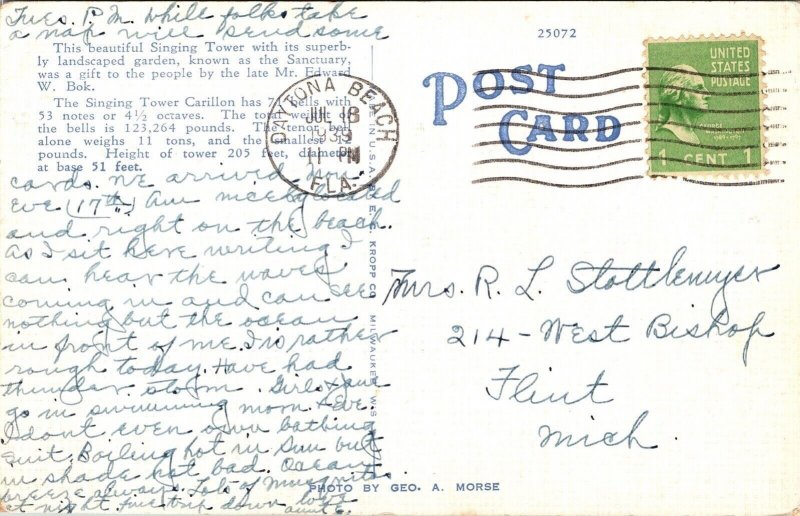 Tues. P.M. While folks take
a nap will send some
This beautiful Singing Tower with its superb-
ly landscaped garden, known as the Sanctuary,
was a gift to the people by the late Mr. Edward
W. Bok.
The Singing Tower Carillon has 71 bells with
53 notes or 4½ octaves. The total weight of
the bells is 123,264 pounds. The tenor bell
alone weighs 11 tons, and the smallest 12
pounds. Height of tower 205 feet, diameter
at base 51 feet.
cards. We arrived
Eve (17th) Am nicely located
and right on the beach.
As I sit here writing I
can hear the waves
coming in and can see
nothing but the ocean
in front of me. Is rather
rough today. Have had
thunder storm. Girls &
go in swimming morn & Eve.
I don't even own bathing
suit. Boiling hot in Sun but
in shade not bad. Ocean
breeze always. Lots of Mosquitos
at night. Fine trip down love
E. C. KROPP CO., MILWAUKEE, WIS.
25072
POST
CARD
DAYTONA BEACH
JUL 18
11 PM
1939
FLA.
UNITED
STATES
POSTAGE
1 CENT 1
Mrs. R. L. Stottlemyer
214 - West Bishop
Flint
Mich.
PHOTO BY GEO. A. MORSE